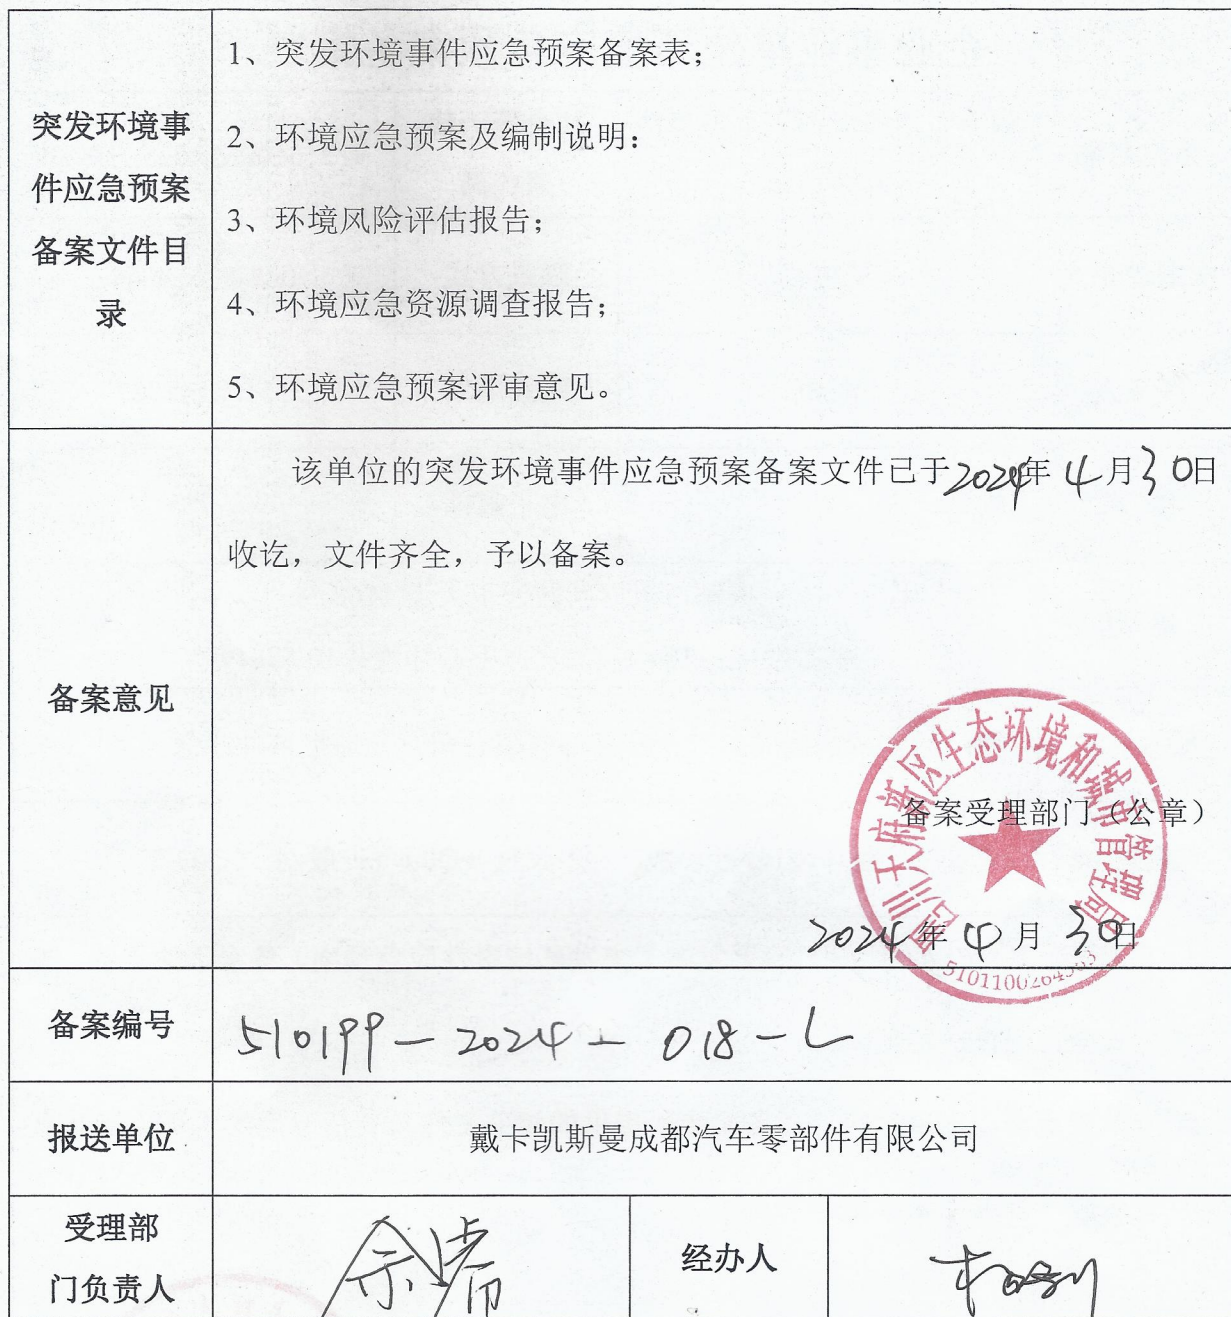 突发环境事
件应急预案
备案文件目
录
1、突发环境事件应急预案备案表；
2、环境应急预案及编制说明：
3、环境风险评估报告；
4、环境应急资源调查报告；
5、环境应急预案评审意见。
备案意见
该单位的突发环境事件应急预案备案文件已于2024年4月30日
收讫，文件齐全，予以备案。
四川天府新区生态环境和城市管理局
备案受理部门（公章）
2024年4月30日
备案编号
510199-2024-018-L
报送单位
戴卡凯斯曼成都汽车零部件有限公司
受理部
门负责人
经办人